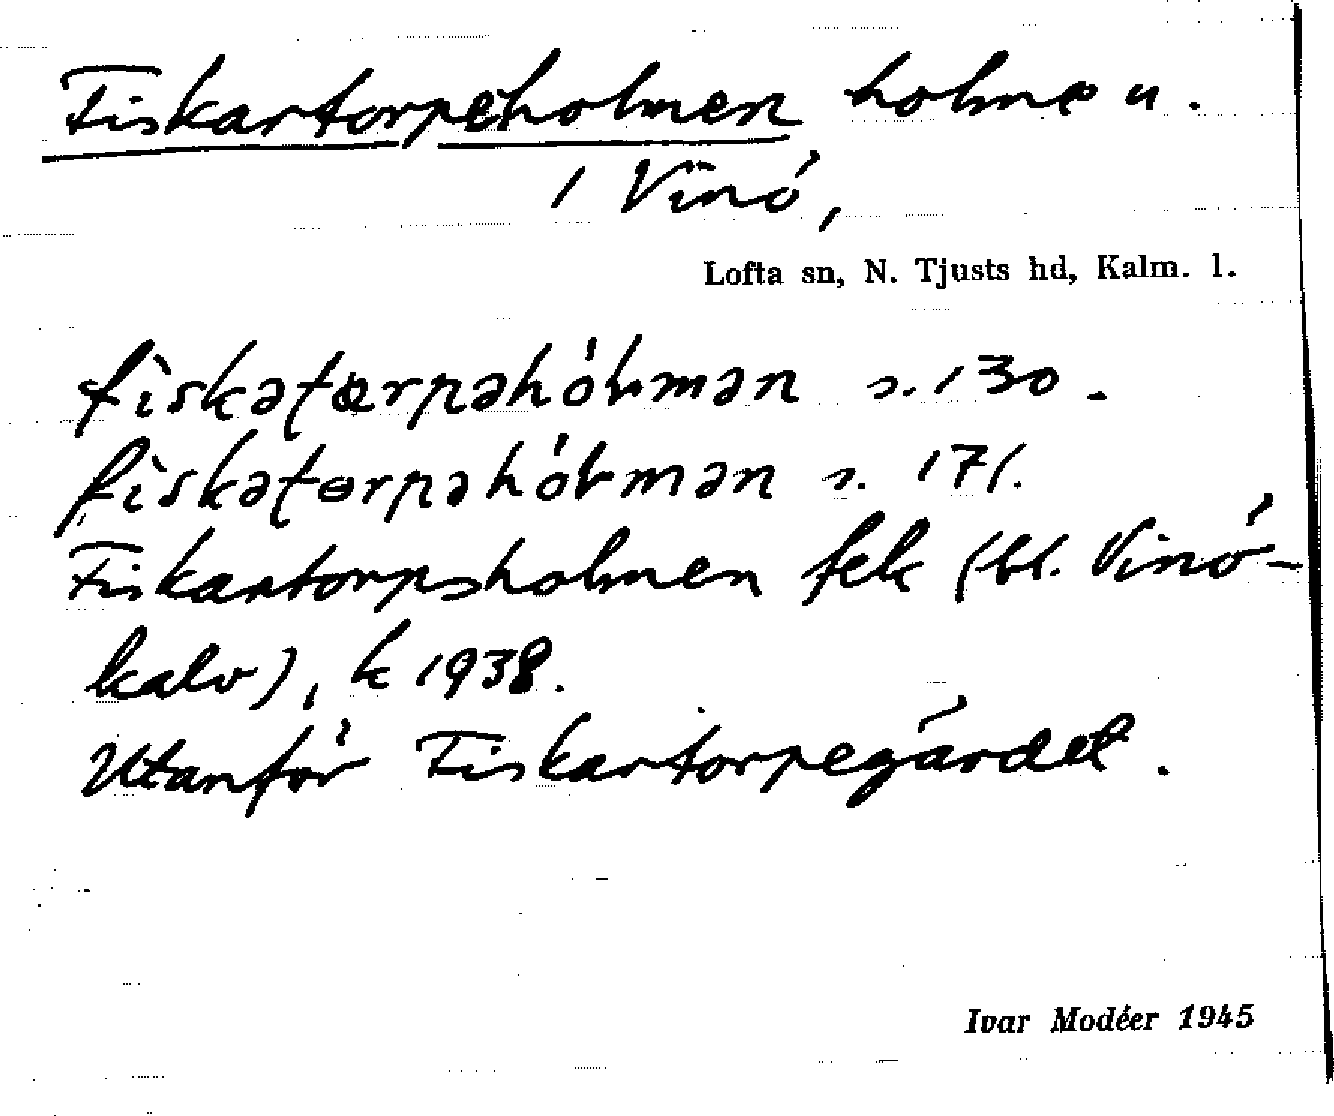 Fiskartorpeholmen holme u.
i Vinö,
Lofta sn, N. Tjusts hd, Kalm. l.
s. 130.
s. 171.
Fiskartorpsholmen fek (bl. Vinö-
kalv), k 1938.
Utanför Fiskartorpegärdet.
Ivar Modéer 1945